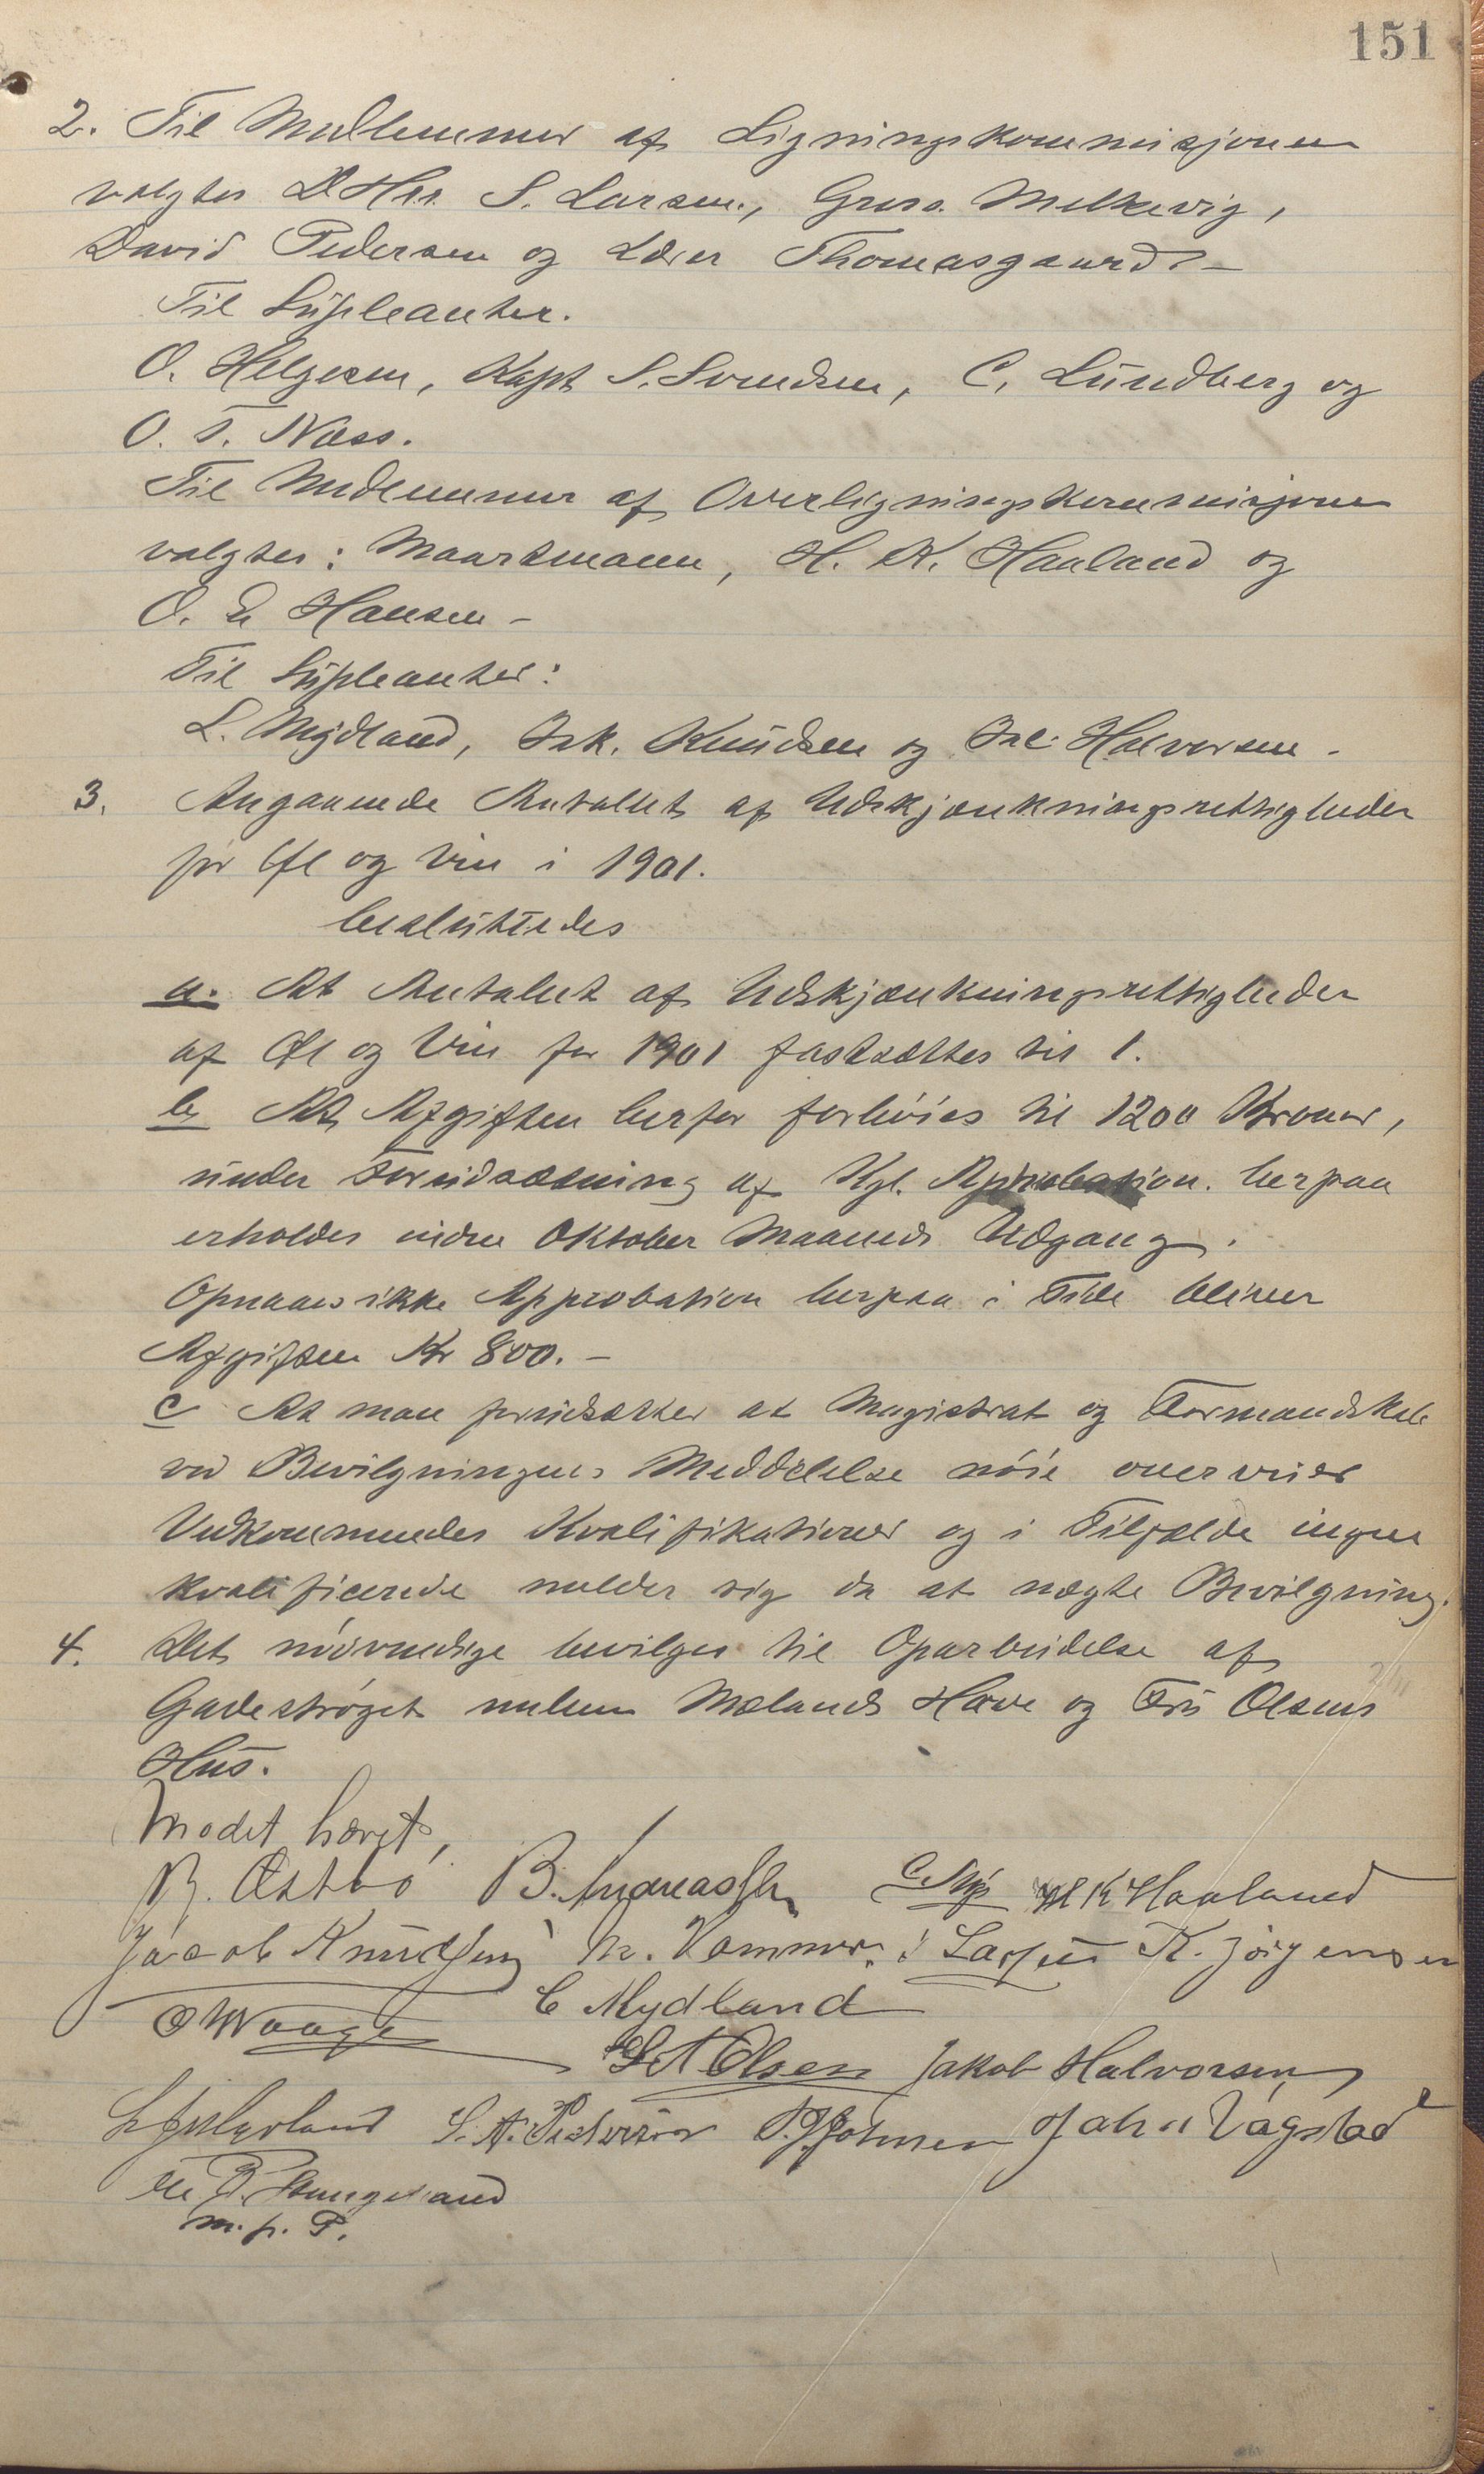 151
2. Til Medlemmer af Ligningskommisjonen
valgtes DHrr. S. Larsen, Gross. Melkevig,
David Pedersen og Lærer Thomasgaard. –
Til Supleanter.
O. Helgesen, Kapt S. Svendsen, C. Lundberg og
O. T. Næss.
Til Medlemmer af Overligningskommisjonen
valgtes: Maartmann, H. K. Haaland og
O. E. Hansen –
Til Supleanter:
L. Mydland, Jak. Knudsen og Jac. Halvorsen –
3. Angaaende Antallet af Udskjænkningsrettigheder
for Øl og Vin i 1901.
besluttedes
a. At Antallet af Udskjænkningsrettigheder
af Øl og Vin for 1901 fastsættes til 1.
b At Afgiften herfor forhøies til 1200 Kroner,
under Forudsætning af Kgl. Approbation herpaa
erholdes inden Oktober Maaneds Udgang.
Opnaaes ikke Approbation herpaa i Tide bliver
Afgiften Kr 800. –
c At man forudsætter at Magistrat og Formandskab
ved Bevilgningens Meddelelse nøie overveier
Vedkommendes Kvalifikationer og i Tilfælde ingen
kvalificerede melder sig da at nægte Bevilgning.
4. Det nødvendige bevilges til Oparbeidelse af
Gadestrøget mellem Mælands Have og Fru Olsens
Hus.
Mødet hævet,
B. Østbø B. Andreassen H K Haaland
Jacob Knudsen M. Hammer. Larsen K. Jörgensen
O Waage C Mydland
Olsen Jakob Halvorsen
S. A. Pedersen John Vagstad
m. p. P.